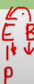 E B
P